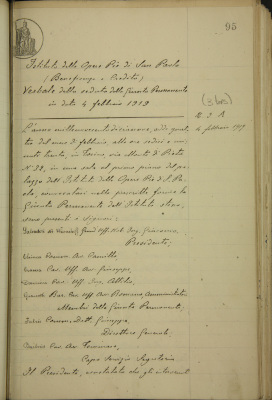 95
Istituto delle Opere Pie di San Paolo
(Beneficenza e Credito)
Verbale della seduta della Giunta Permanente
in data 4 febbraio 1919
N. 3
4 febbraio 1919
L'anno millenovecentodiciannove, addì quattro
del mese di febbraio, alle ore sedici e
minuti trenta, in Torino, via Monte di Pietà
N. 32, in una sala al primo piano del
palazzo dell'Istituto delle Opere Pie di S. Pao
lo, convocatasi nelle prescritte forme la
Giunta Permanente dell'Istituto stesso,
sono presenti i Signori:
Ing. Giovanni,
Presidente;
Comm. Avv. Camillo,
Cav. Uff. Avv. Giuseppe,
Cav. Uff. Attilio,
Cav. Uff. Avv.
Membri della Giunta Permanente,
Comm. Dott. Giuseppe,
Direttore Generale
Cav. Avv. Tommaso,
Capo Servizio Segreteria
Il Presidente, constatato che gli intervenuti